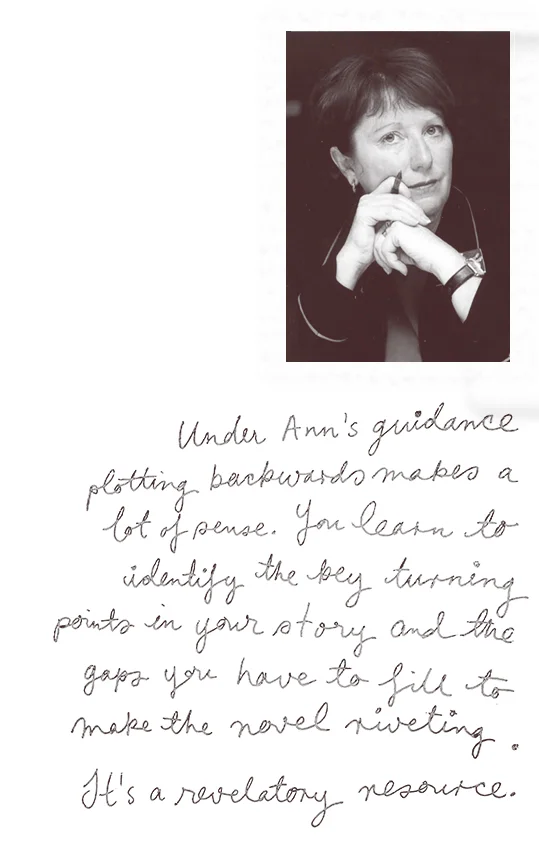 Under Ann's guidance
plotting backwards makes a
lot of sense. You learn to
identify the key turning
points in your story and the
gaps you have to fill to
make the novel riveting.
It's a revelatory resource.